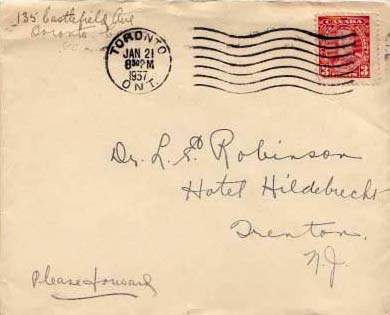 135 Castlefield Ave
Toronto
TORONTO
JAN 21
8 30 PM
1937
ONT.
CANADA
3 3
Dr. L. St. Robinson
Hotel Hildebrecht
Trenton.
N.J.
Please forward